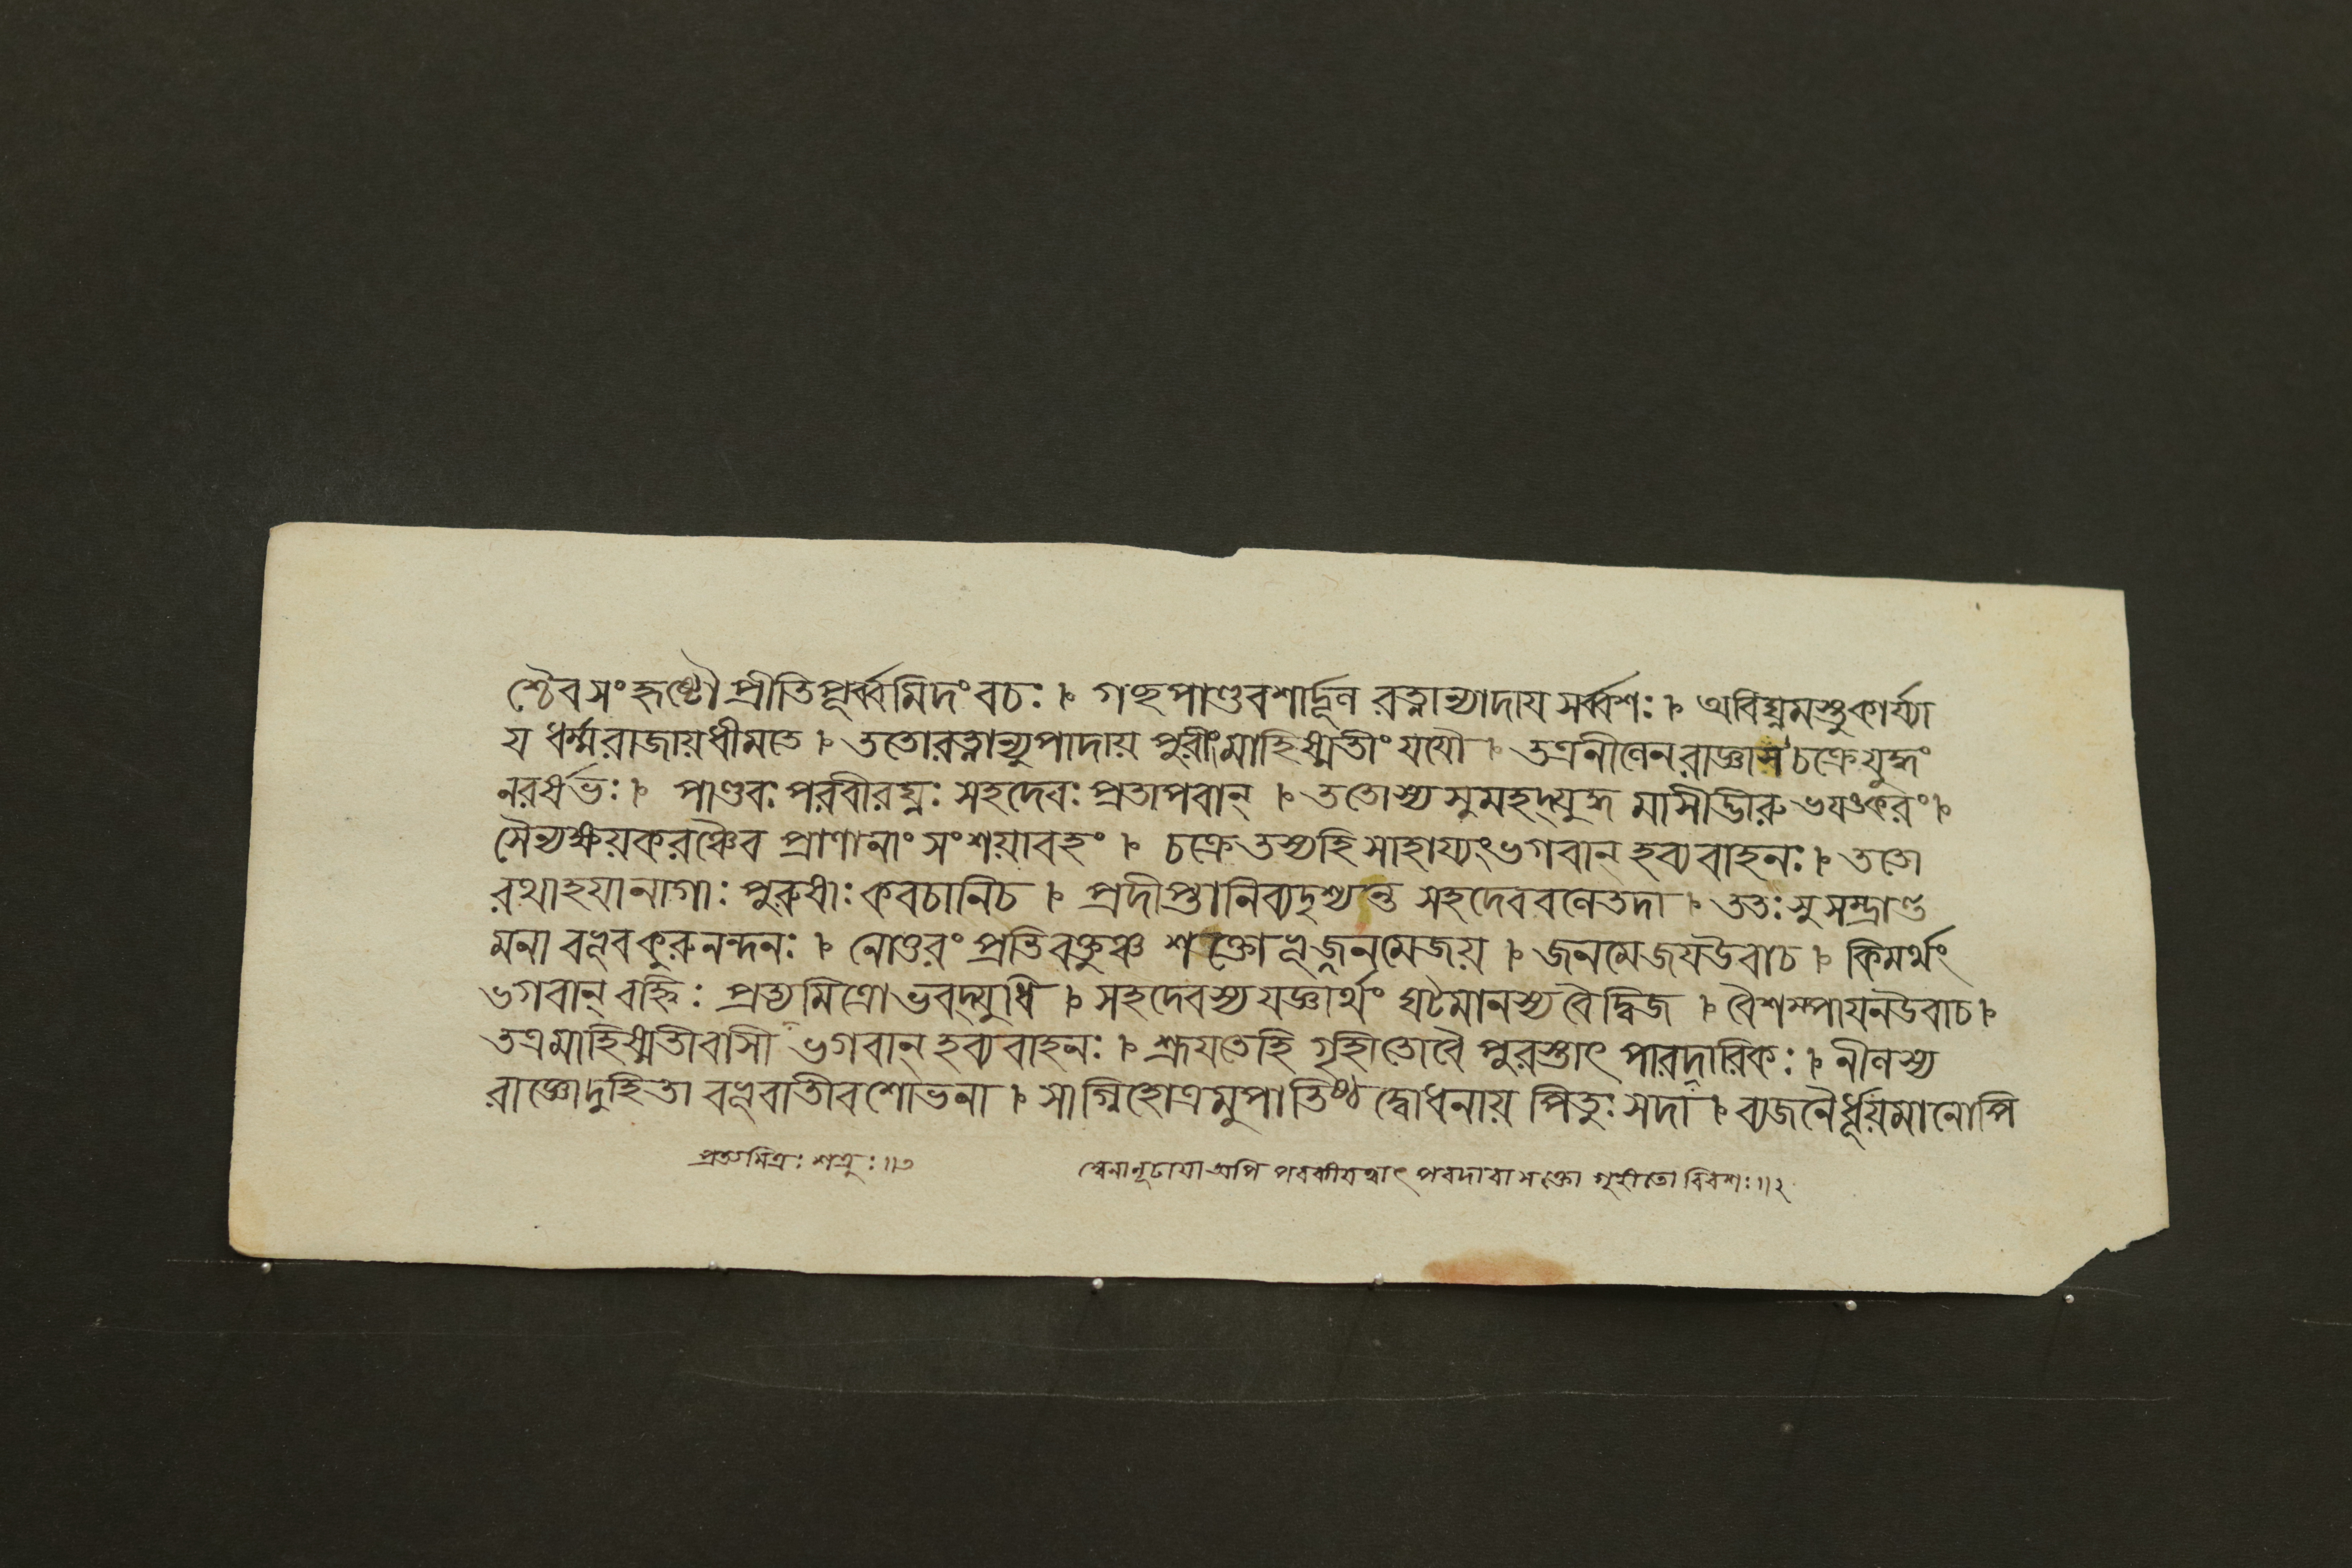 শ্চৈবসংহৃষ্টৌ প্রীতিপূর্ব্বমিদংবচঃ । গচ্ছপাণ্ডবশার্দ্দূল রত্নান্যাদায সর্ব্বশঃ । অবিঘ্নমস্তুকার্য্যা
য ধর্ম্মরাজায়ধীমতে । ততোরত্নান্যুপাদায় পুরীংমাহিষ্মতীংযযৌ । তত্রনীলেনরাজ্ঞাসচক্রেযুদ্ধং
নরর্ষভঃ । পাণ্ডবঃপরবীরঘ্নঃ সহদেবঃ প্রতাপবান্ । ততোস্যসুমহদ্যুদ্ধ মাসীদ্ভীরুভযঙ্করং ।
সৈন্যক্ষয়করঞ্চৈব প্রাণানাং সংশয়াবহং । চক্রেতস্যহিসাহায্যংভগবান্ হব্যবাহনঃ । ততো
রথাহযানাগাঃ পুরুষাঃ কবচানিচ । প্রদীপ্তানিব্যদৃশ্যন্ত সহদেববলেতদা । ততঃ সুসম্ভ্রান্ত
মনা বভূবকুরুনন্দনঃ । নোত্তরং প্রতিবক্তুঞ্চ শক্তোভূজ্জনমেজয় । জনমেজযউবাচ । কিমর্থং
ভগবান্ বহ্নিঃ প্রত্যমিত্রোভবদ্যুধি । সহদেবস্যযজ্ঞার্থং ঘটমানস্যবৈদ্বিজ । বৈশম্পাযনউবাচ ।
তত্রমাহিষ্মতীবাসী ভগবান্ হব্যবাহনঃ । শ্রূযতেহি গৃহীতোবৈ পুরস্তাৎ পারদারিকঃ । নীলস্য
রাজ্ঞোদুহিতা বভূবাতীবশোভনা । সাগ্নিহোত্রমুপাতিষ্ঠদ্বোধনায় পিতুঃ সদা । ব্যজনৈর্ধূয়মানোপি
প্রত্যমিত্রঃ শত্রুঃ ॥৩
অপি পরকীযত্বাৎ পরদারাসক্তো গৃহীতো বিবশঃ ॥২